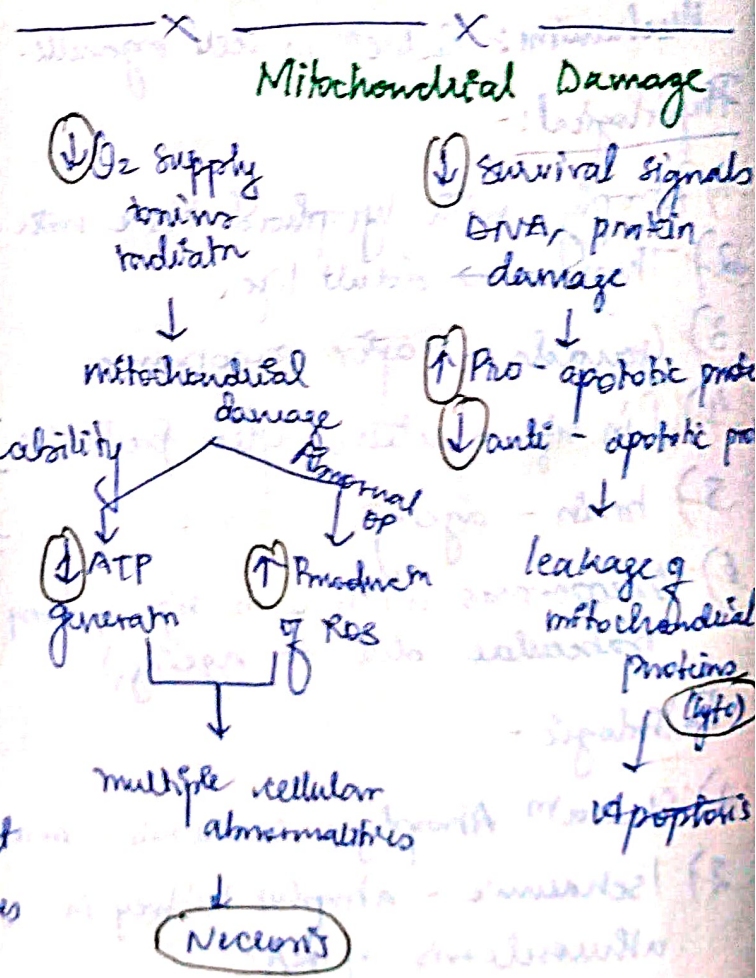 Mitochondrial Damage
↓ O2 supply
toxins
radiatn
↓
mitochondrial
damage
ability
Abnormal
OP
↓ ATP
generatn
↑ Productn
of ROS
↓
multiple cellular
abnormalities
↓
Necrosis
↓ survival signals
DNA, protein
damage
↓
↑ Pro - apoptotic prote
↓ anti - apoptotic pro
↓
leakage of
mitochondrial
proteins
(cyto)
↓
Apoptosis